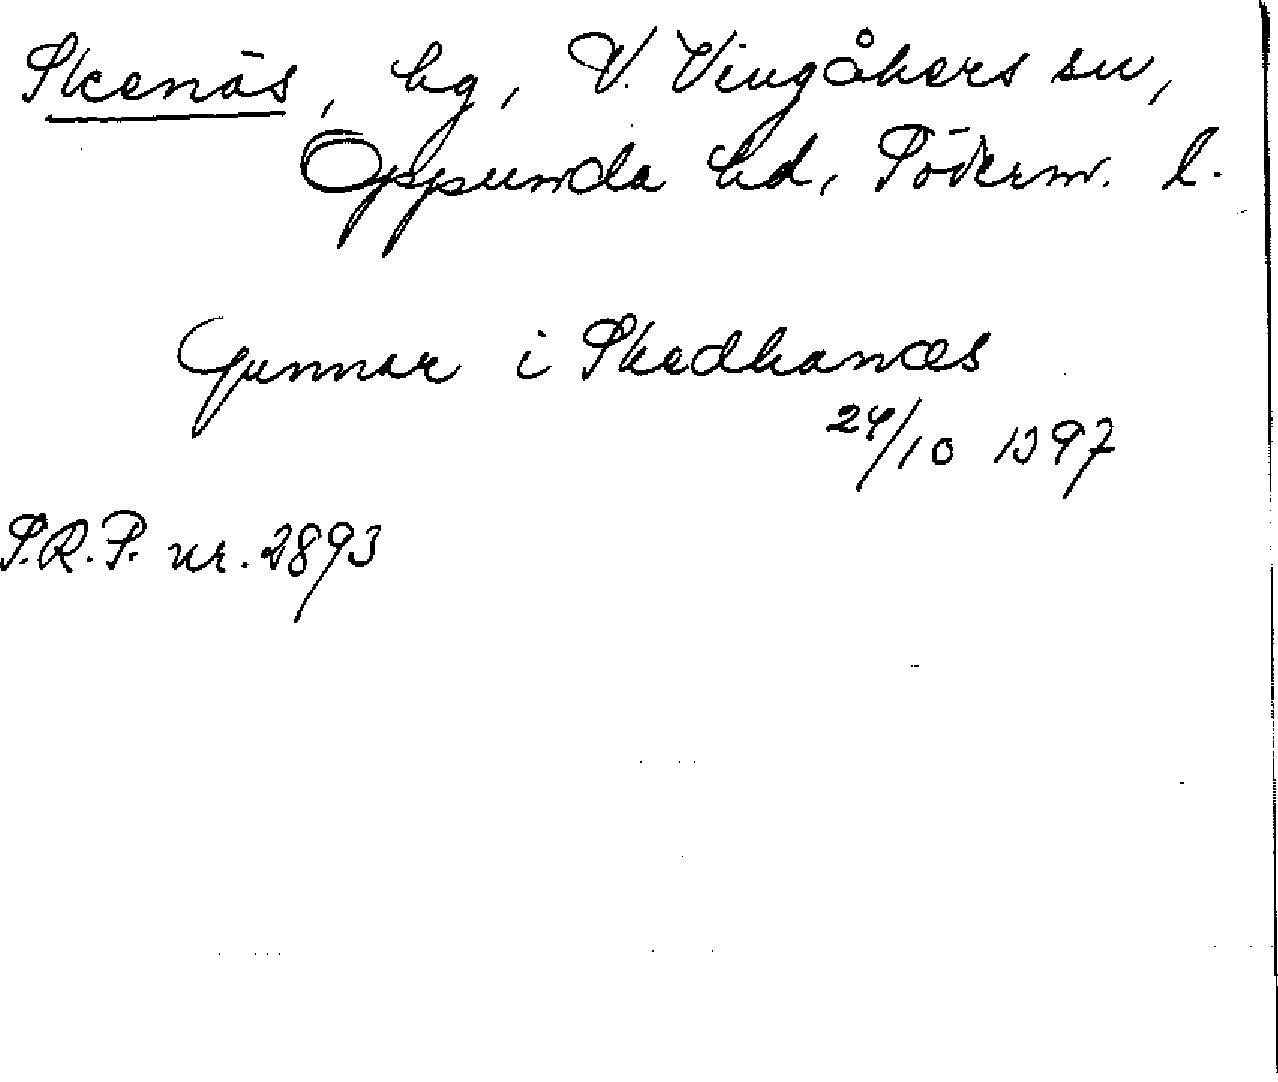 Skenäs, by, V. Vingåkers sn,
Oppunda hd, Söderm. l.
Gunnar i Skedhanæs
24/10 1397
S.R.P. nr. 2893